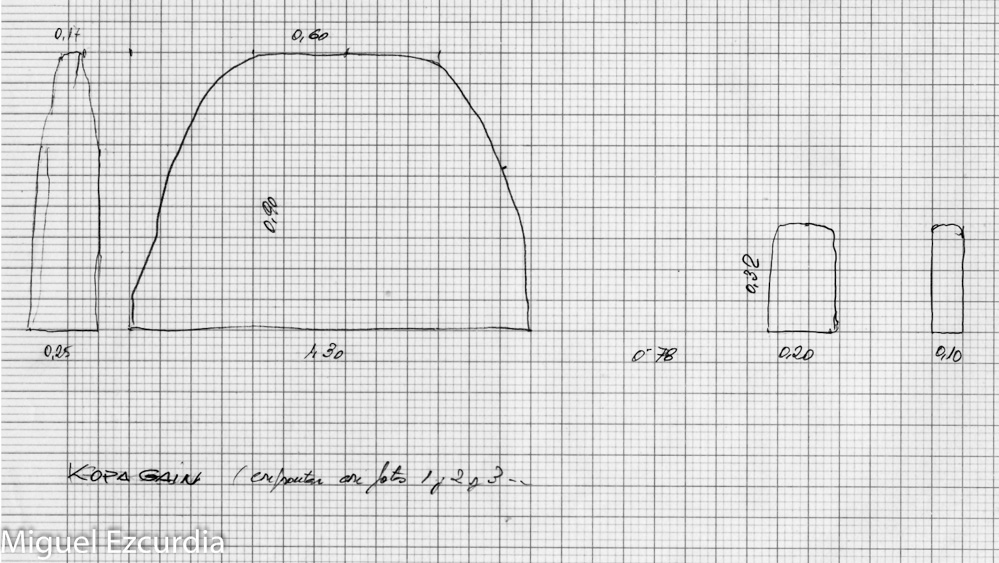 0,17
0,60
0,90
0,32
0,25
1.30
0-78
0,20
0,10
KOPAGAIN ( fotos 1 y 2 y 3 --
Miguel Ezcurdia